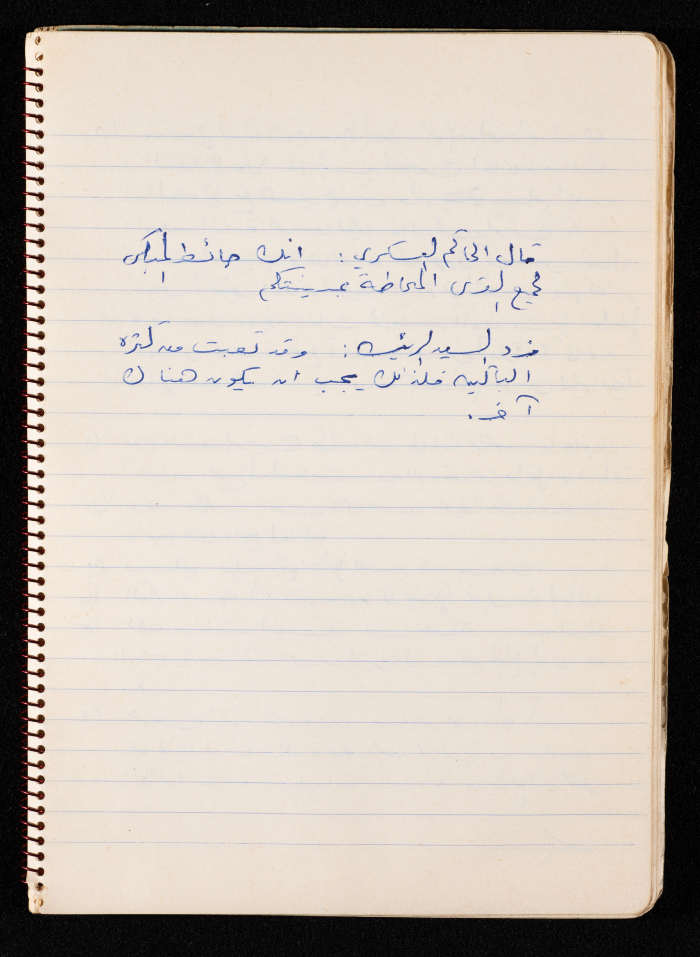 قال الحاكم العسكري : انك حائط المبكى
لجميع القرى المحاطة بمدينتكم
فرد السيد الرئيس : وقد تعبت من كثرة
الباكيه فلذلك يجب ان يكون هناك
آخر .